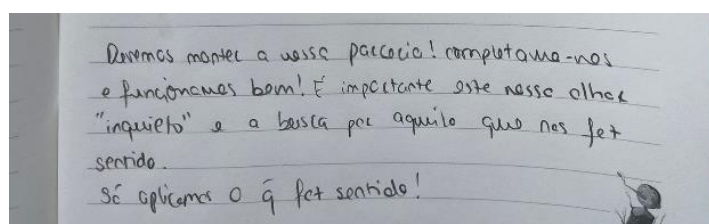 Devemos manter a nossa parceria! completamo-nos
e funcionamos bem! É importante este nosso olhar
"inquieto" e a busca por aquilo que nos fez
sentido.
Só aplicamos o q̃ faz sentido!